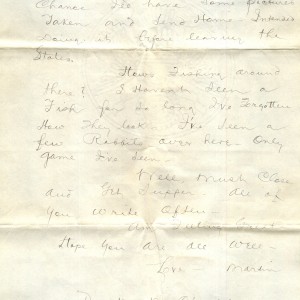 Chance I'll have some pictures
Taken and send Home. Intended
doing it before leaving the
States.
Hows Fishing around
there? I Havent seen a
Fish for so long I've Forgotten
How They look. I've seen a
few Rabbits over here. Only
game I've seen.
Well, must Close
and get supper. All of
you write often.
Hope you are all well.
Love - Martin